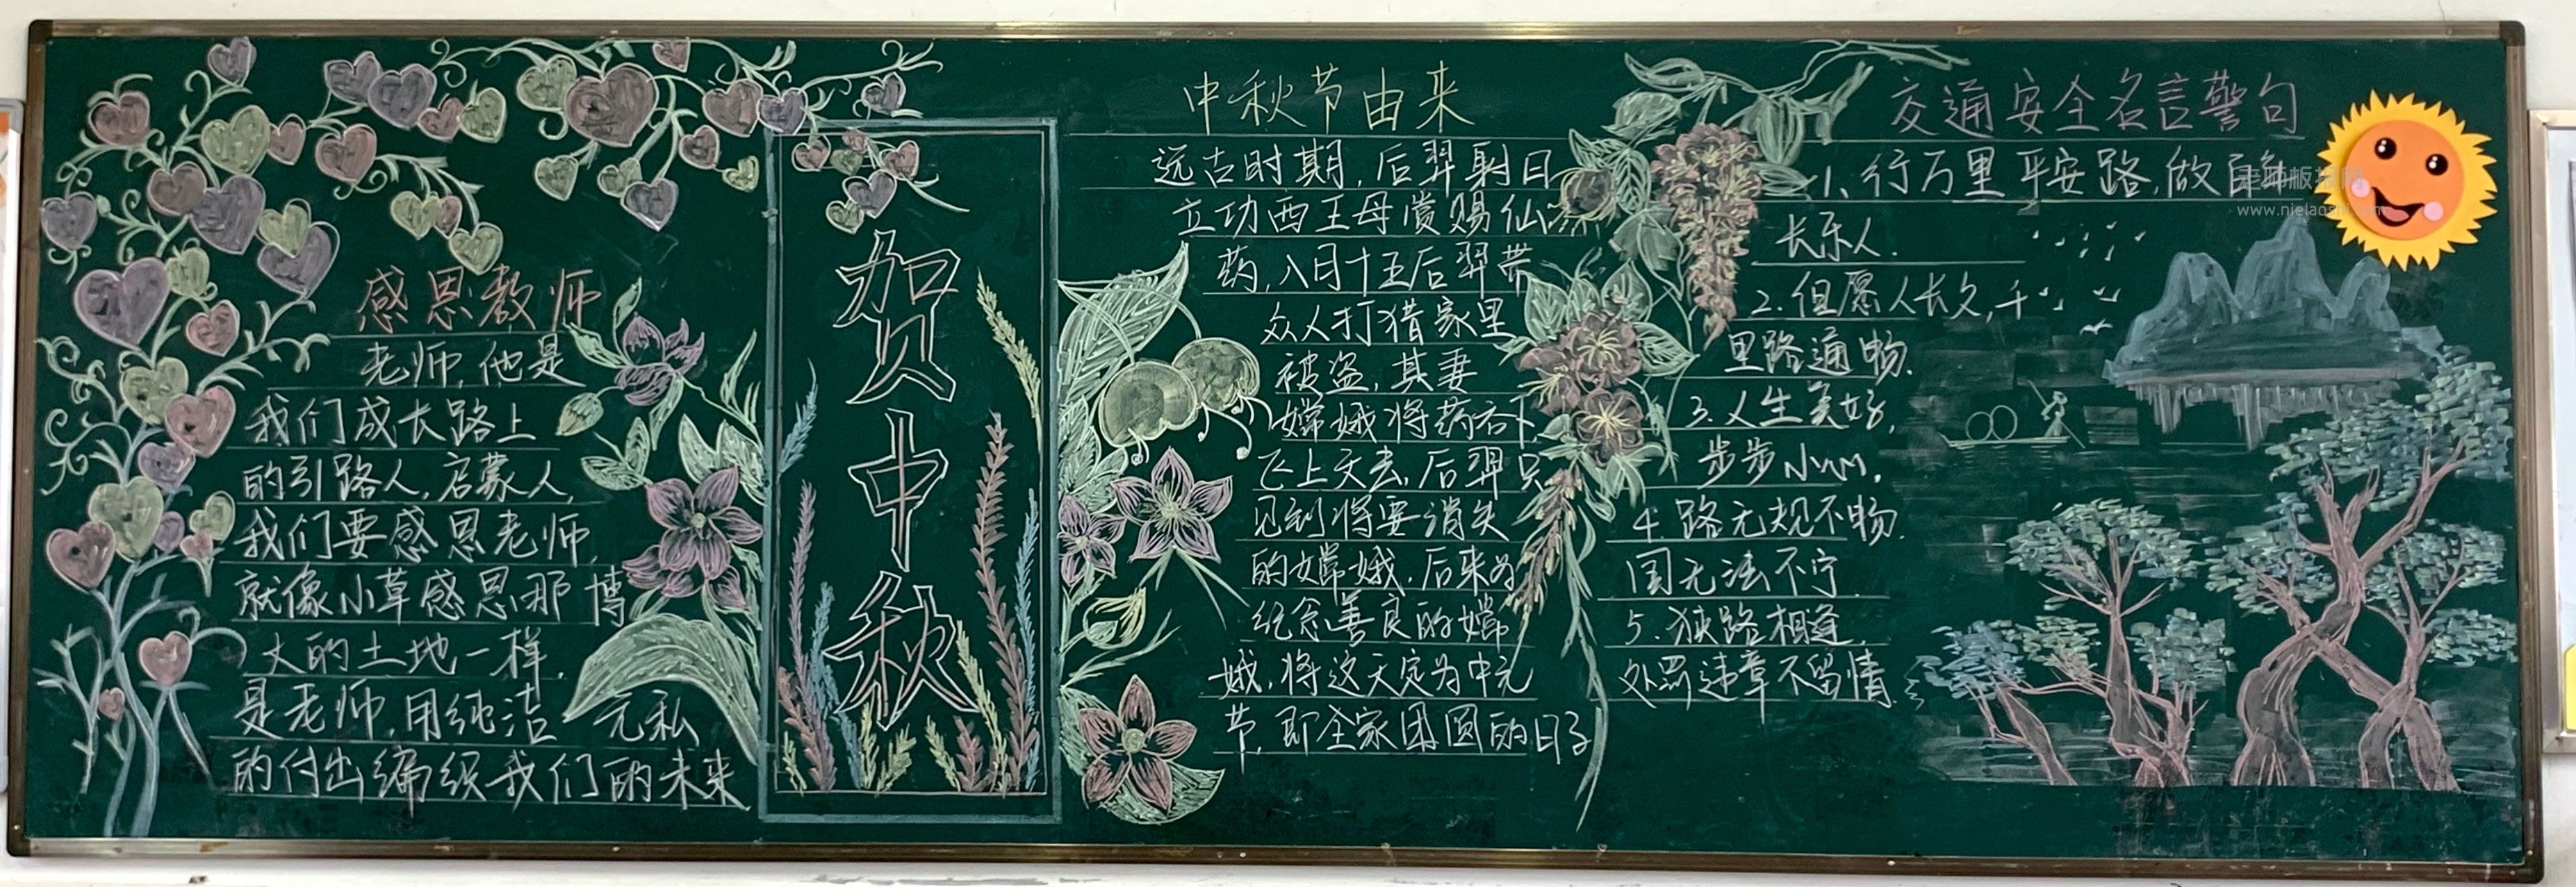 感恩教师
老师,他是
我们成长路上
的引路人,启蒙人,
我们要感恩老师,
就像小草感恩那博
大的土地一样.
是老师,用纯洁 无私
的付出编织我们的未来
贺中秋
中秋节由来
远古时期,后羿射日
立功西王母赏赐仙
药,八月十五后羿带
众人打猎家里
被盗,其妻
嫦娥将药吞下,
飞上天去,后羿只
见到将要消失
的嫦娥,后来为
纪念善良的嫦
娥,将这天定为中元
节,即全家团圆的日子
交通安全名言警句
1、行万里平安路,做百年
长乐人.
2.但愿人长久,千
里路通畅.
3.人生美好,
步步小心.
4.路无规不畅.
国无法不宁.
5.狭路相逢,
处罚违章不留情.
老师板报网
www.nielaoshi.com